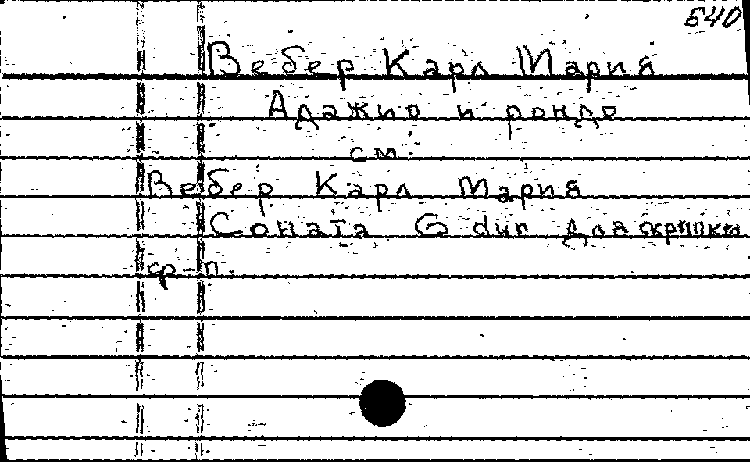 540
Вебер Карл Мария
Адажио и рондо
см.
Вебер Карл Мария
Соната G dur для скрипки
ф-п.